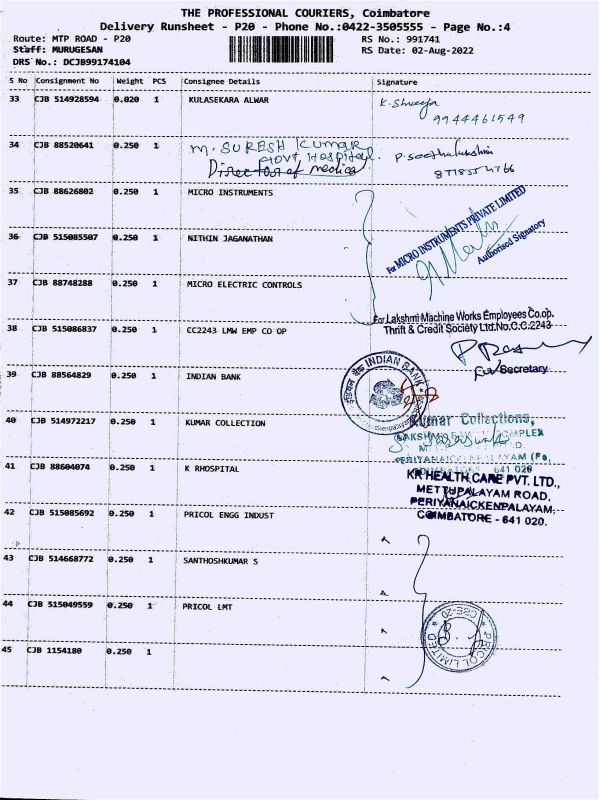 THE PROFESSIONAL COURIERS, Coimbatore
Delivery Runsheet - P20 - Phone No.:0422-3505555 - Page No.:4
Route: MTP ROAD - P20 RS No.: 991741
Staff: MURUGESAN RS Date: 02-Aug-2022
DRS No.: DCJB99174104
S No Consignment No Weight PCS Consignee Details Signature
33 CJB 514928594 0.020 1 KULASEKARA ALWAR
9944461549
34 CJB 88520641 0.250 1 M. SURESH KUMAR
Govt. Hospital.
Director of medical
35 CJB 88626802 0.250 1 MICRO INSTRUMENTS
For MICRO INSTRUMENTS PRIVATE LIMITED
Authorised Signatory
36 CJB 515085507 0.250 1 NITHIN JAGANATHAN
37 CJB 88748288 0.250 1 MICRO ELECTRIC CONTROLS
For Lakshmi Machine Works Employees Co.op.
Thrift & Credit Society Ltd.No.C.C.2243
38 CJB 515086837 0.250 1 CC2243 LMW EMP CO OP
For Secretary
39 CJB 88564829 0.250 1 INDIAN BANK
INDIAN BANK
40 CJB 514972217 0.250 1 KUMAR COLLECTION
Kumar Collections,
COMPLEX
PERIYANAICKENPALAYAM (Po,
641 020
41 CJB 88604074 0.250 1 K RHOSPITAL
KR HEALTH CARE PVT. LTD.,
METTUPALAYAM ROAD,
PERIYANAICKENPALAYAM,
COIMBATORE - 641 020.
42 CJB 515085692 0.250 1 PRICOL ENGG INDUST
43 CJB 514668772 0.250 1 SANTHOSHKUMAR S
44 CJB 515049559 0.250 1 PRICOL LMT
PRICOL LIMITED
CBE-20
45 CJB 1154180 0.250 1